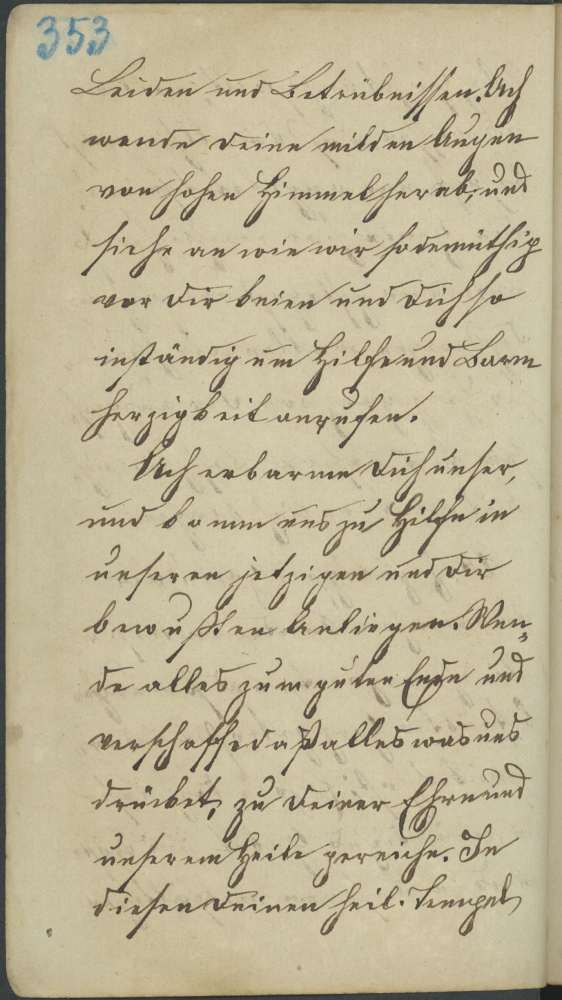 353
Leiden und Betrübnissen. Ach
wende deine milden Augen
von hohen Himmel herab, und
siehe an wie wir so demüthig
vor dir knien und dich so
inständig um Hilfe und Barm
herzigkeit anrufen.
Ach erbarme dich unser,
und komm uns zu Hilfe in
unseren jetzigen und dir
bewußten Anliegen. Wen„
de alles zum guten Ende und
verschaffe daß alles was uns
drücket, zu deiner Ehre und
unserem Heile gereiche. In
diesen deinen heil. Tempel